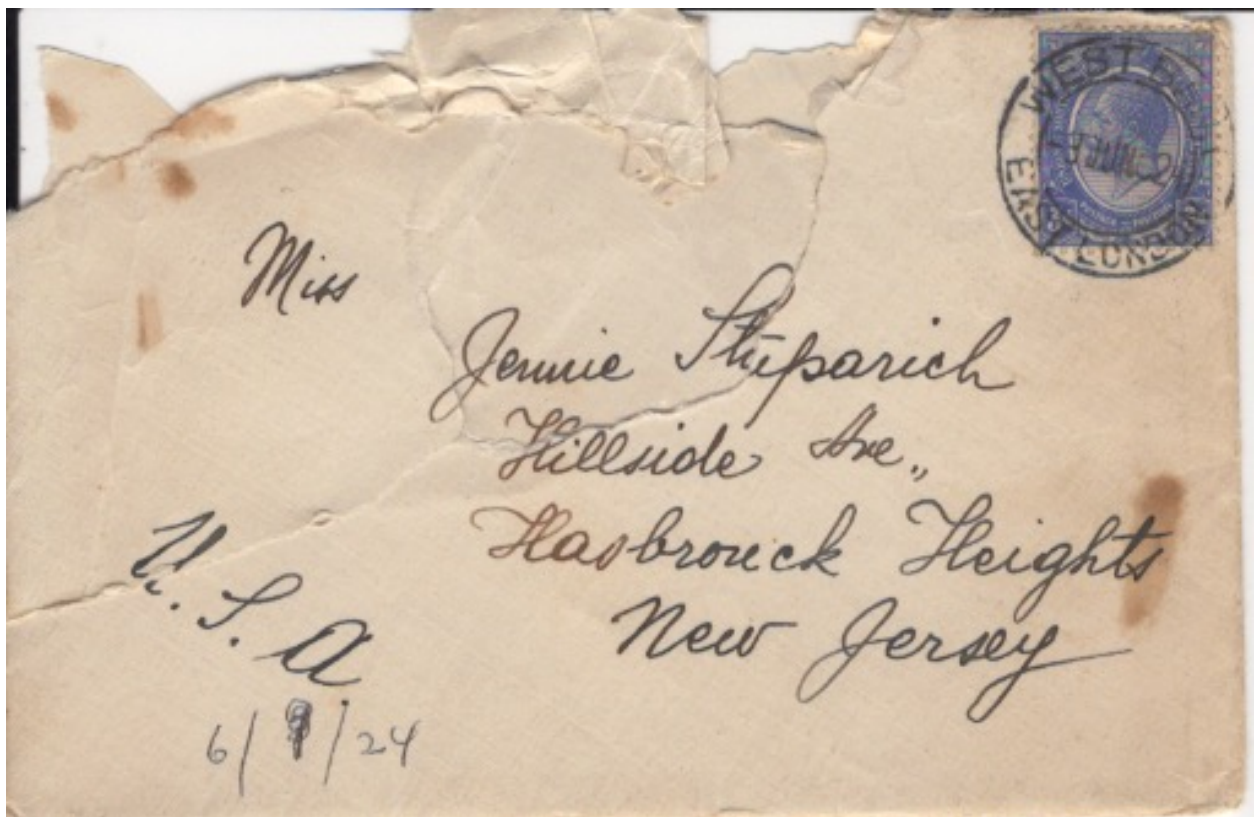 WEST B
JUN 24
EAST LONDON
Miss
Jennie Stuparich
Hillside Ave.,
Hasbrouck Heights
New Jersey
U. S. A
6/ /24